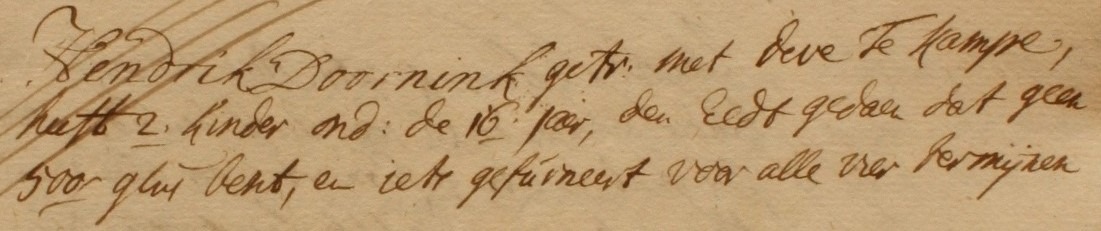 Hendrik Doornink getr. met Deve Te Kampe,
heeft 2. kinder ond: de 16. jaer, den Eedt gedaen dat geen
500 gl. bent, en iets gefurneert voor alle vier termijnen